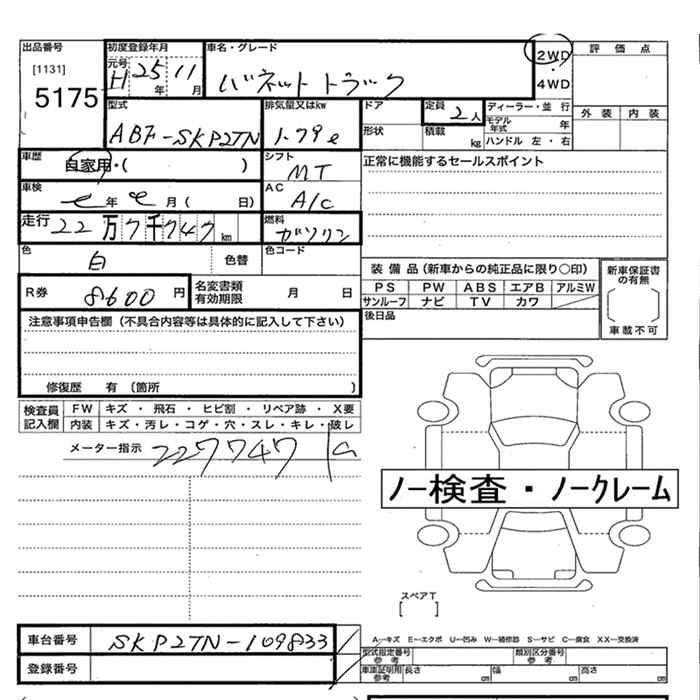 出品番号 初度登録年月 車名・グレード 2WD 評価点
[1131] 元号 H 25年 11月 バネット トラック ・
5175 4WD
型式 排気量又はkw ドア 定員 2人 ディーラー・並行 外装 内装
ABF-SKP2TN 1.79ℓ 形状 積載 kg モデル年式 年
ハンドル 左・右
車歴 自家用・( ) シフト MT 正常に機能するセールスポイント
車検 年 月( 日) AC A/C
走行 22万7千747km 燃料 ガソリン
色 白 色替 色コード
装備品(新車からの純正品に限り○印) 新車保証書の有無
R券 8600円 名変書類有効期限 月 日 PS PW ABS エアB アルミW
サンルーフ ナビ TV カワ 車載不可
注意事項申告欄(不具合内容等は具体的に記入して下さい) 後日品
修復歴 有(箇所 )
検査員 FW キズ・飛石・ヒビ割・リペア跡・X要
記入欄 内装 キズ・汚レ・コゲ・穴・スレ・キレ・破レ
メーター指示 227747
ノー検査・ノークレーム
スペアT
[ ]
車台番号 SKP2TN-109833 A―キズ E―エクボ U―凹み W―補修跡 S―サビ C―腐食 XX―交換済
型式指定番号 参考 類別区分番号 参考
登録番号 車車証明用 参考 長さ cm 幅 cm 高さ cm